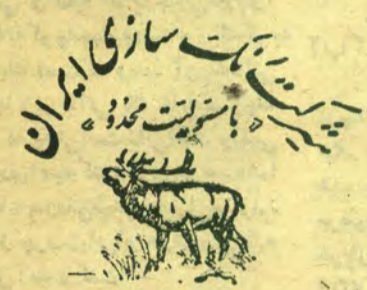 شرکت رنگ سازی ایران
« با مسئولیت محدود »